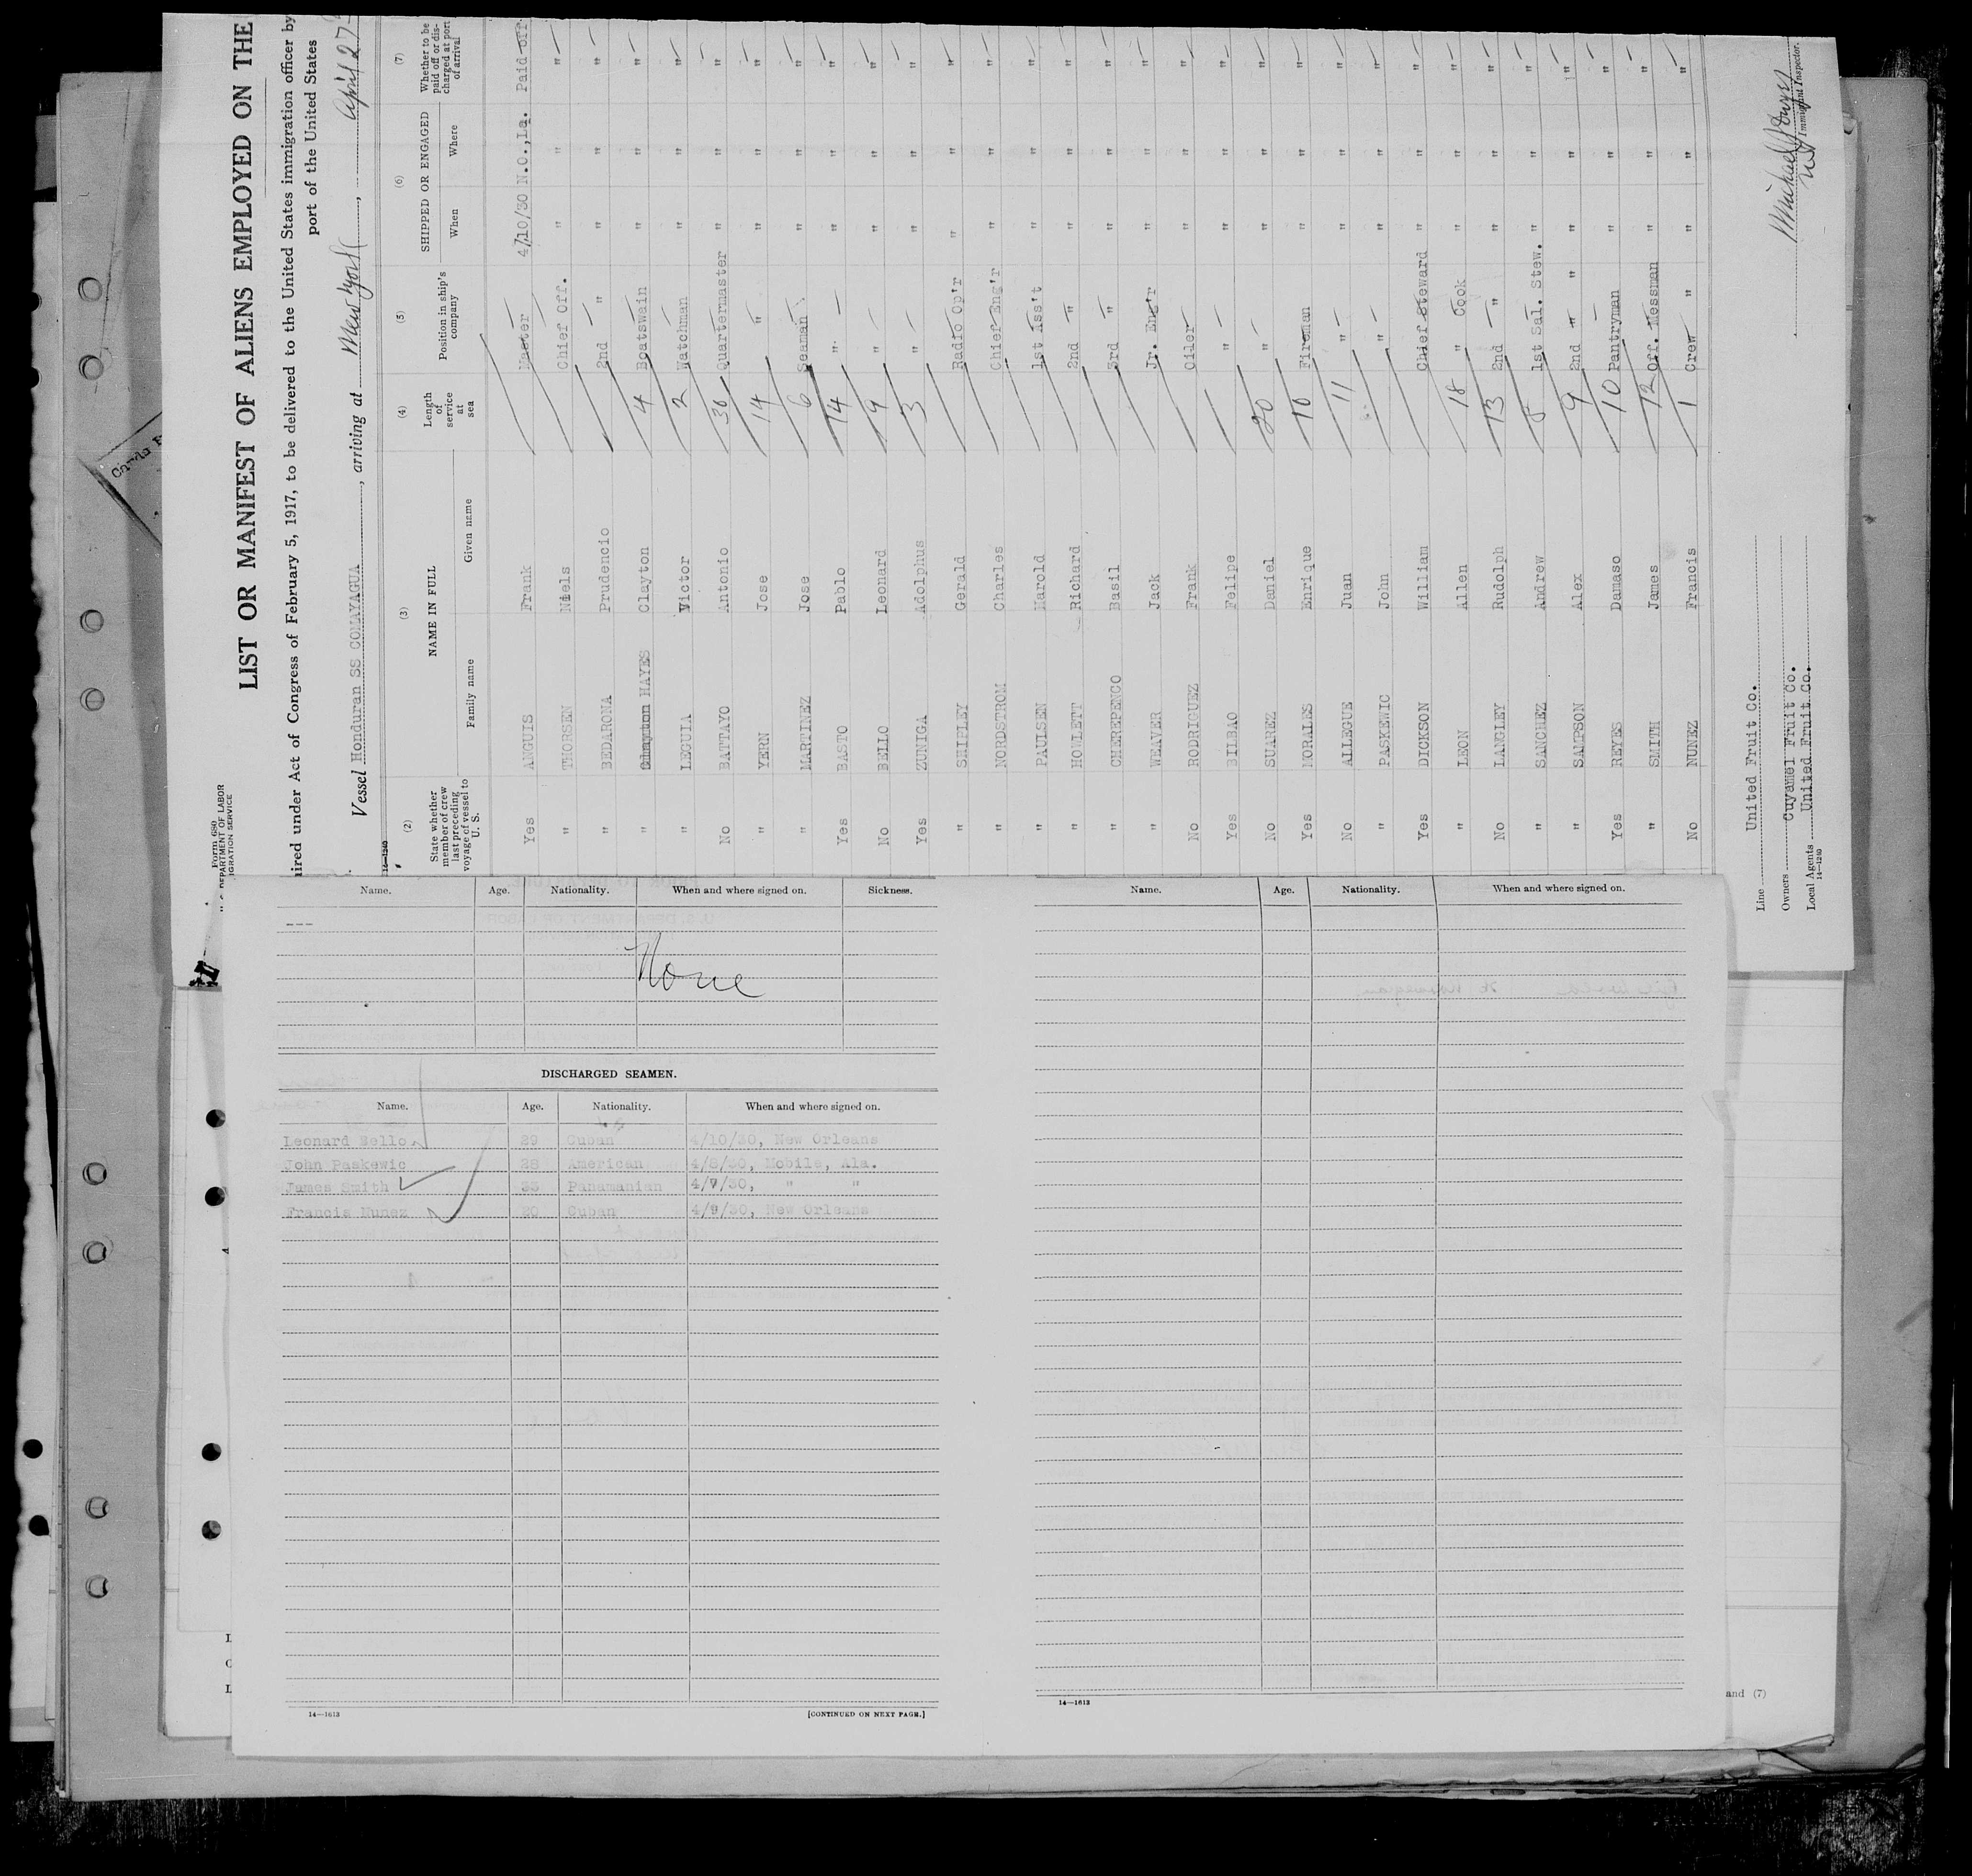 Form 680
U. S. DEPARTMENT OF LABOR
IGRATION SERVICE
LIST OR MANIFEST OF ALIENS EMPLOYED ON THE
ired under Act of Congress of February 5, 1917, to be delivered to the United States immigration officer by
port of the United States
Vessel Honduran SS COMAYAGUA, arriving at New York, April 27
14—1240
(2) (3) (4) (5) (6) (7)
State whether member of crew last preceding voyage of vessel to U. S. NAME IN FULL Family name Given name Length of service at sea Position in ship's company SHIPPED OR ENGAGED When Where Whether to be paid off or discharged at port of arrival
Yes ANGUIS Frank Master 4/10/30 N.O.,La. Paid off
" THORSEN Niels Chief Off. " " "
" BEDARONA Prudencio 2nd " " " "
" Clayton HAYES Clayton 4 Boatswain " " "
" LEGUIA Victor 2 Watchman " " "
No BATTAYO Antonio 30 Quartermaster " " "
" YERN Jose 14 " " " "
" MARTINEZ Jose 6 Seaman " " "
Yes BASTO Pablo 14 " " " "
No BELLO Leonard 9 " " " "
Yes ZUNIGA Adolphus 3 " " " "
" SHIPLEY Gerald Radio Op'r " " "
" NORDSTROM Charles Chief Eng'r " " "
" PAULSEN Harold 1st Ass't " " "
" HOWLETT Richard 2nd " " " "
" CHEREPENCO Basil 3rd " " " "
" WEAVER Jack Jr. Eng'r " " "
No RODRIGUEZ Frank Oiler " " "
Yes BILBAO Felipe " " " "
No SUAREZ Daniel 20 " " " "
Yes MORALES Enrique 10 Fireman " " "
No ALLEGUE Juan 11 " " " "
" PASKEWIC John " " " "
Yes DICKSON William Chief Steward " " "
" LEON Allen 18 " Cook " " "
No LANGLEY Rudolph 13 2nd " " " "
" SANCHEZ Andrew 8 1st Sal. Stew. " " "
" SAMPSON Alex 9 2nd " " " " "
Yes REYES Damaso 10 Pantryman " " "
" SMITH James 12 Off. Messman " " "
No NUNEZ Francis 1 Crew " " " "
Line United Fruit Co.
Owners Cuyamel Fruit Co.
Local Agents United Fruit Co.
14—1240
Immigrant Inspector.
Name. Age. Nationality. When and where signed on. Sickness.
---
None
DISCHARGED SEAMEN.
Name. Age. Nationality. When and where signed on.
Leonard Bello 29 Cuban 4/10/30, New Orleans
John Paskewic 28 American 4/8/30, Mobile, Ala.
James Smith 35 Panamanian 4/7/30, " "
Francis Nunez 20 Cuban 4/9/30, New Orleans
14—1613
[CONTINUED ON NEXT PAGE.]
Name. Age. Nationality. When and where signed on.
14—1613
and (7)